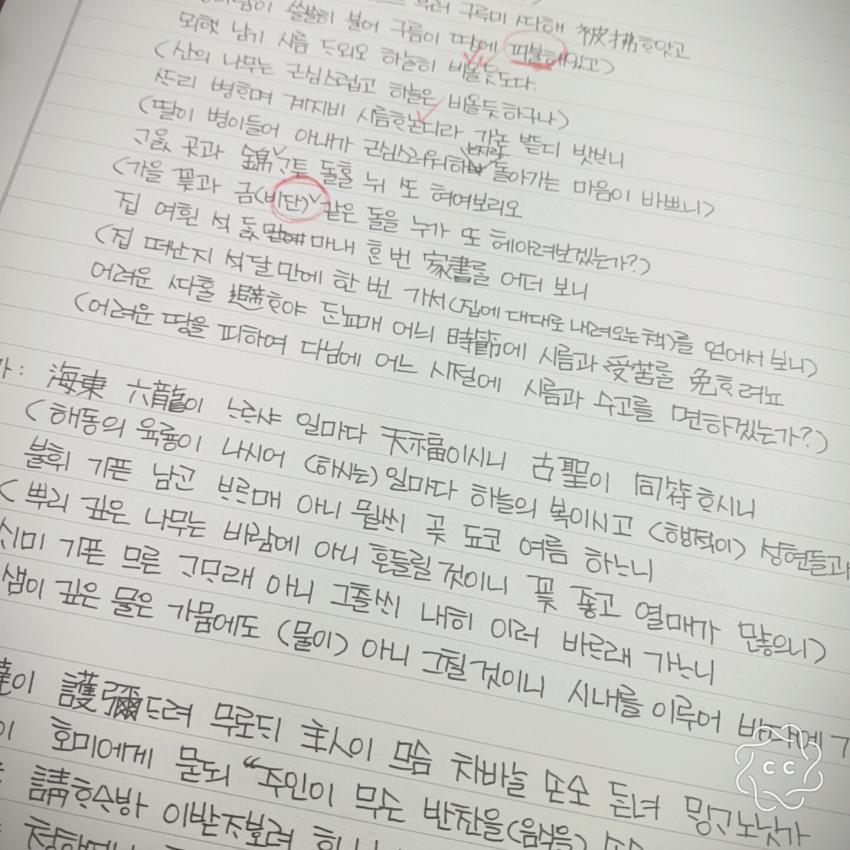 구루미 ᄯᅡ해 被拂ᄒᆞ얏고
쓸쓸히 불어 구름이 땅에 피불해있고)
뫼햇 남기 시름 ᄃᆞ외오 하ᄂᆞᆯ히 비올ᄃᆞᆺ도다.
(산의 나무는 근심스럽고 하늘은 비올듯하구나)
ᄯᆞ리 병ᄒᆞ며 계지비 시름ᄒᆞ논디라 가논 ᄠᅳ디 밧ᄇᆞ니
(딸이 병이들어 아내가 근심스러워하는지라 돌아가는 마음이 바쁘니)
ᄀᆞᄋᆞᆳ 곳과 錦 ᄀᆞᄐᆞᆫ 돌ᄒᆞᆯ 뉘 또 혀여보리오
(가을 꽃과 금(비단) 같은 돌을 누가 또 헤아려보겠는가?)
집 여흰 석 ᄃᆞᆳ 마내 ᄒᆞᆫ 번 家書ᄅᆞᆯ 어더 보니
(집 떠난지 석달만에 한 번 가서(집에 대대로 내려오는 책)를 얻어서 보니)
어려운 ᄯᅡᄒᆞᆯ 避ᄒᆞ야 ᄃᆞᆫ뇨매 어늬 時節에 시름과 受苦ᄅᆞᆯ 免ᄒᆞ려뇨
(어려운 땅을 피하여 다님에 어느 시절에 시름과 수고를 면하겠는가?)
가: 海東 六龍이 ᄂᆞᄅᆞ샤 일마다 天福이시니 古聖이 同符ᄒᆞ시니
(해동의 육룡이 나시어 (하시는) 일마다 하늘의 복이시고 (행적이) 성현들과
불휘 기픈 남ᄀᆞᆫ ᄇᆞᄅᆞ매 아니 뮐ᄊᆡ 곶 됴코 여름 하ᄂᆞ니
(뿌리 깊은 나무는 바람에 아니 흔들릴 것이니 꽃 좋고 열매가 많으니)
ᄉᆡ미 기픈 므른 ᄀᆞᄆᆞ래 아니 그츨ᄊᆡ 내히 이러 바ᄅᆞ래 가ᄂᆞ니
샘이 깊은 물은 가뭄에도 (물이) 아니 그칠 것이니 시내를 이루어 바다에 가
護彌ᄃᆞ려 무로ᄃᆡ 主人이 므슴 차바ᄂᆞᆯ 손ᅀᅩ ᄃᆞᆮ녀 ᄆᆡᇰᄀᆞ노닛가
호미에게 묻되 "주인이 무슨 반찬을(음식을)
請ᄒᆞᅀᆞᄫᅡ 이받ᄌᆞᄫᅩ려